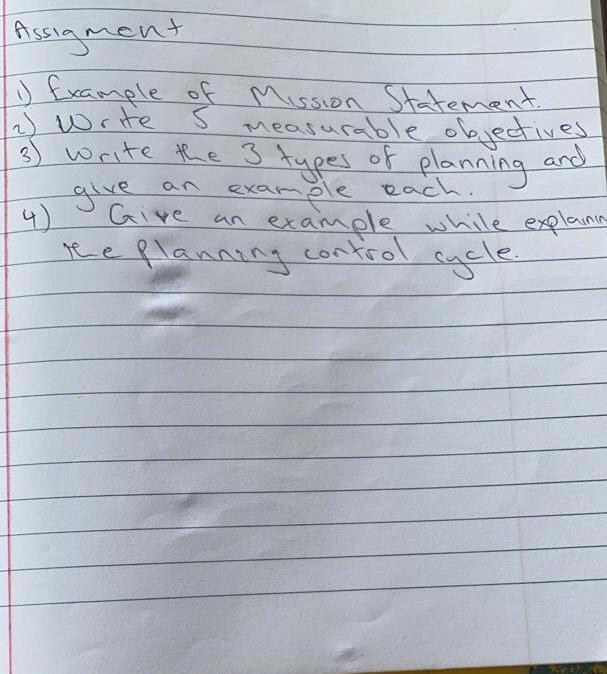 Assigment
1) Example of Mission Statement.
2) Write 5 measurable objectives
3) Write the 3 types of planning and
give an example each.
4) Give an example while explainin
the Planning control cycle.